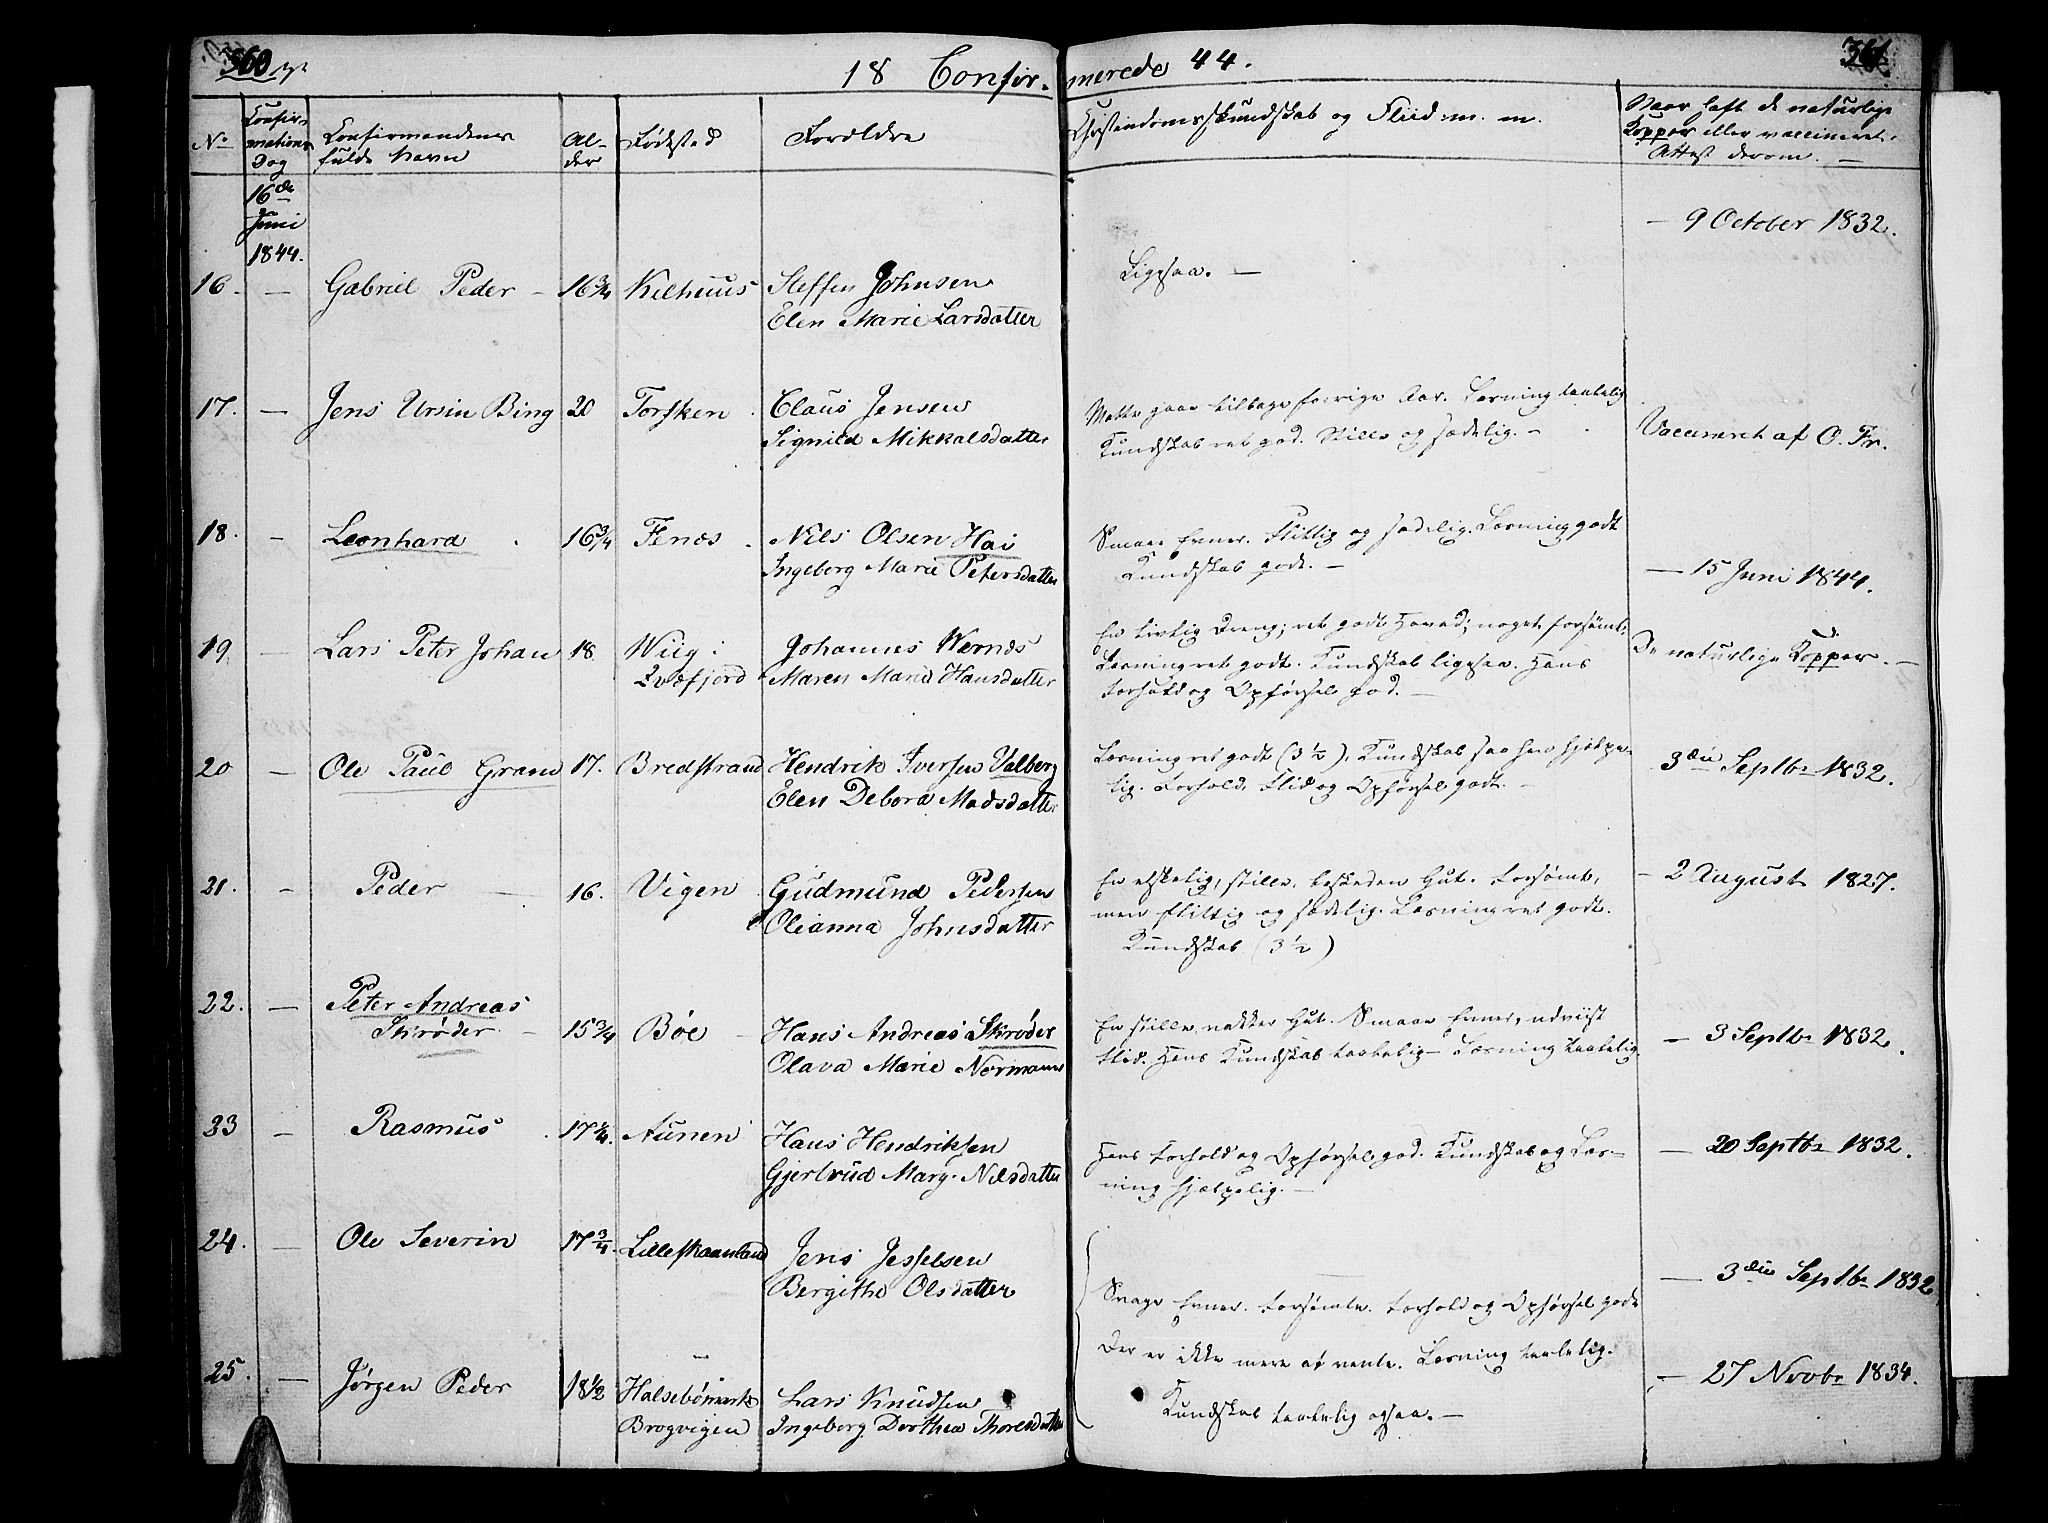 360
18 Confir-
merede 44.
361.
No
Confir-
mations
Dag
Confirmandens
fulde Navn
Al-
der
Fødested
Forældre
Christendomskundskab og Fliid m. m.
Naar haft de naturlige
Kopper eller vaccineret.
Attest derom. —
16de
Juni
1844.
— 9 October 1832.
16. — Gabriel Peder — 16¾ Kilhuus Steffen Johnsen
Elen Marie Larsdatter
Ligesaa. —
17. — Jens Ursin Bing 20 Torsken. Claus Jensen
Signild Mikkalsdatter
Maatte gaae tilbage forrige Aar. Læsning taalelig
Kundskab ret god. Stille og sædelig. —
Vaccineret af O. Fr.
18. — Leonhard. 16¾ Fenæs. Nils Olsen Hai
Ingeborg Marie Petersdatter
Smaae Evner. Flittig og sædelig. Læsning godt
Kundskab godt. —
— 15 Juni 1844.
19. — Lars Peter Johan 18. Wiig i
Qvæfjord
Johannes Wernæs
Maren Maria Hansdatter
En livlig Dreng; ret godt Hoved; noget forsømt.
Læsning ret godt. Kundskab ligesaa. Hans
Forhold og Opførsel god. —
De naturlige Kopper. —
20 — Ole Paul Gram 17. Bredstrand Hendrik Iversen Valberg
Elen Debora Madsdatter
Læsning ret godt (3½). Kundskab saa hen hjelpe-
lig. Forhold, Flid og Opførsel godt. —
3die Septbr 1832.
21. — Peder — 16. Vigen Gudmund Pedersen
Olianna Johnsdatter
En elskelig, stille, beskeden Gut. Forsømt,
men flittig og sædelig. Læsning ret godt.
Kundskab (3½)
— 2 August 1827.
22. — Peter Andreas
Skrøder — 15¾ Bøe Hans Andreas Skrøder
Olava Marie Normann
En stille, vakker Gut. Smaae Evner, udviist
Flid. Hans Kundskab taalelig — Læsning taalelig.
— 3 Septbr 1832.
23 — Rasmus. 17¼. Aunen Hans Hendriksen
Gjertrud Marg. Nilsdatter
Hans Forhold og Opførsel god. Kundskab og Læs-
ning hjelpelig. —
— 20 Septbr 1832.
24. — Ole Severin 17¾. Lilleskaanland Jens Jesselsen
Bergithe Olsdatter
Svage Evner. Forsømte. Forhold og Opførsel godt
— 3die Septbr 1832
25. — Jørgen Peder 18½ Halsebømark
Brogvigen
Lars Knudsen
Ingeborg Dorthea Thoresdatter
Der er ikke mere at vente. Læsning taalelig.
Kundskab taalelig ogsaa. —
— 27 Novbr 1834.